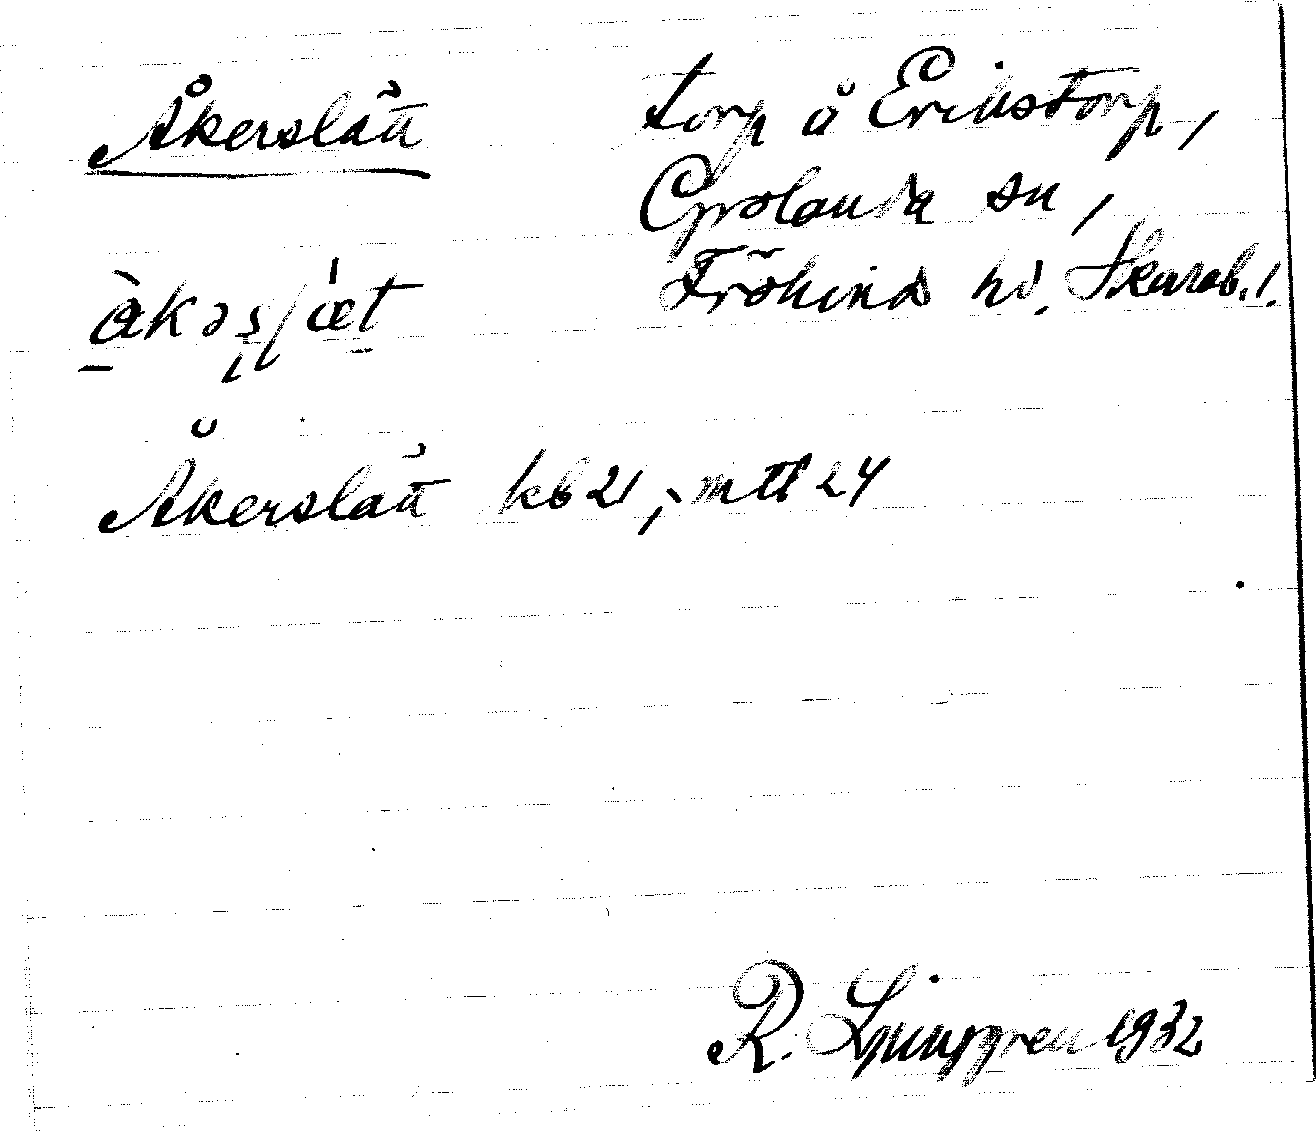 Åkerslätt
torp å Erikstorp,
Grolanda sn,
Frökinds hd. Skarab. l.
Åkerslätt kb 21, mtl 24
R. Ljunggren 1932